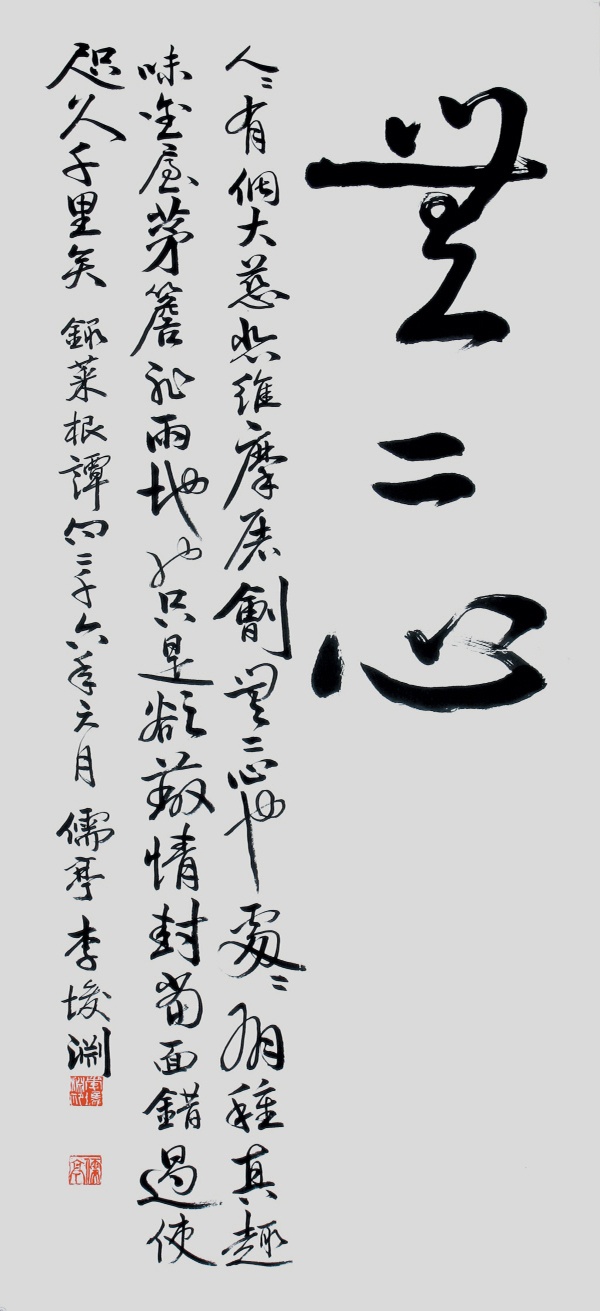 無二心
人〻有個大慈悲維摩屠劊無二心也處〻有種真趣
味金屋茅簷非兩地也只是欲蔽情封當面錯過使
咫尺千里矣 錄菜根譚句二千六年六月 儒亭 李埈淵
儒亭